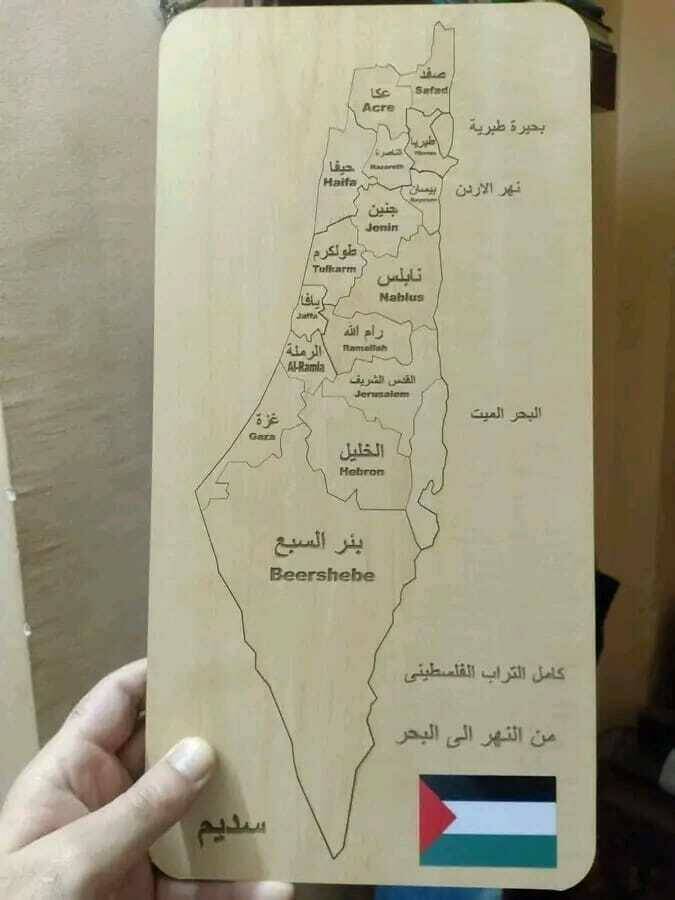 صفد
Safad
عكا
Acre
بحيرة طبرية
طبريا
الناصرة
Nazareth
حيفا
Haifa
بيسان
نهر الاردن
جنين
Jenin
طولكرم
Tulkarm
نابلس
Nablus
يافا
Jaffa
رام الله
Ramallah
الرملة
Al-Ramla
القدس الشريف
Jerusalem
البحر الميت
غزة
Gaza
الخليل
Hebron
بئر السبع
Beershebe
كامل التراب الفلسطيني
من النهر الى البحر
سديم